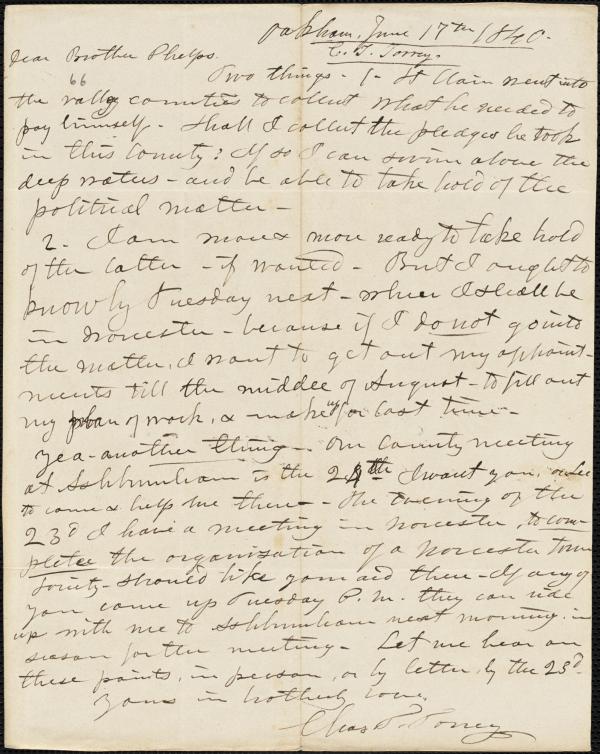 Oakham, June 17th 1840.
C. T. Torrey.
Dear Brother Phelps.
66
Two things - 1 - St Clair went into
the valley counties to collect what he needed to
pay himself. - Shall I collect the pledges he took
in this County? If so I can swim above the
deep waters - and be able to take hold of the
political matter -
2 - I am more & more ready to take hold
of the latter - if wanted - But I ought to
know by Tuesday next - when I shall be
in Worcester - because if I do not go into
the matter, I want to get out my appoint-
ments till the middle of August - to fill out
my plan of work, & make up for lost time -
yea - another thing - Our County meeting
at Ashburnham is the 24th I want you, or Lee
to come & help me then - The evening of the
23d I have a meeting in Worcester, to com-
plete the organization of a Worcester Town
Society - should like your aid there - If any of
you come up Tuesday P.M. they can ride
up with me to Ashburnham next morning, in
season for the meeting - Let me hear on
these points, in person, or by letter, by the 23d.
Yours in brotherly love,
Chas T. Torrey